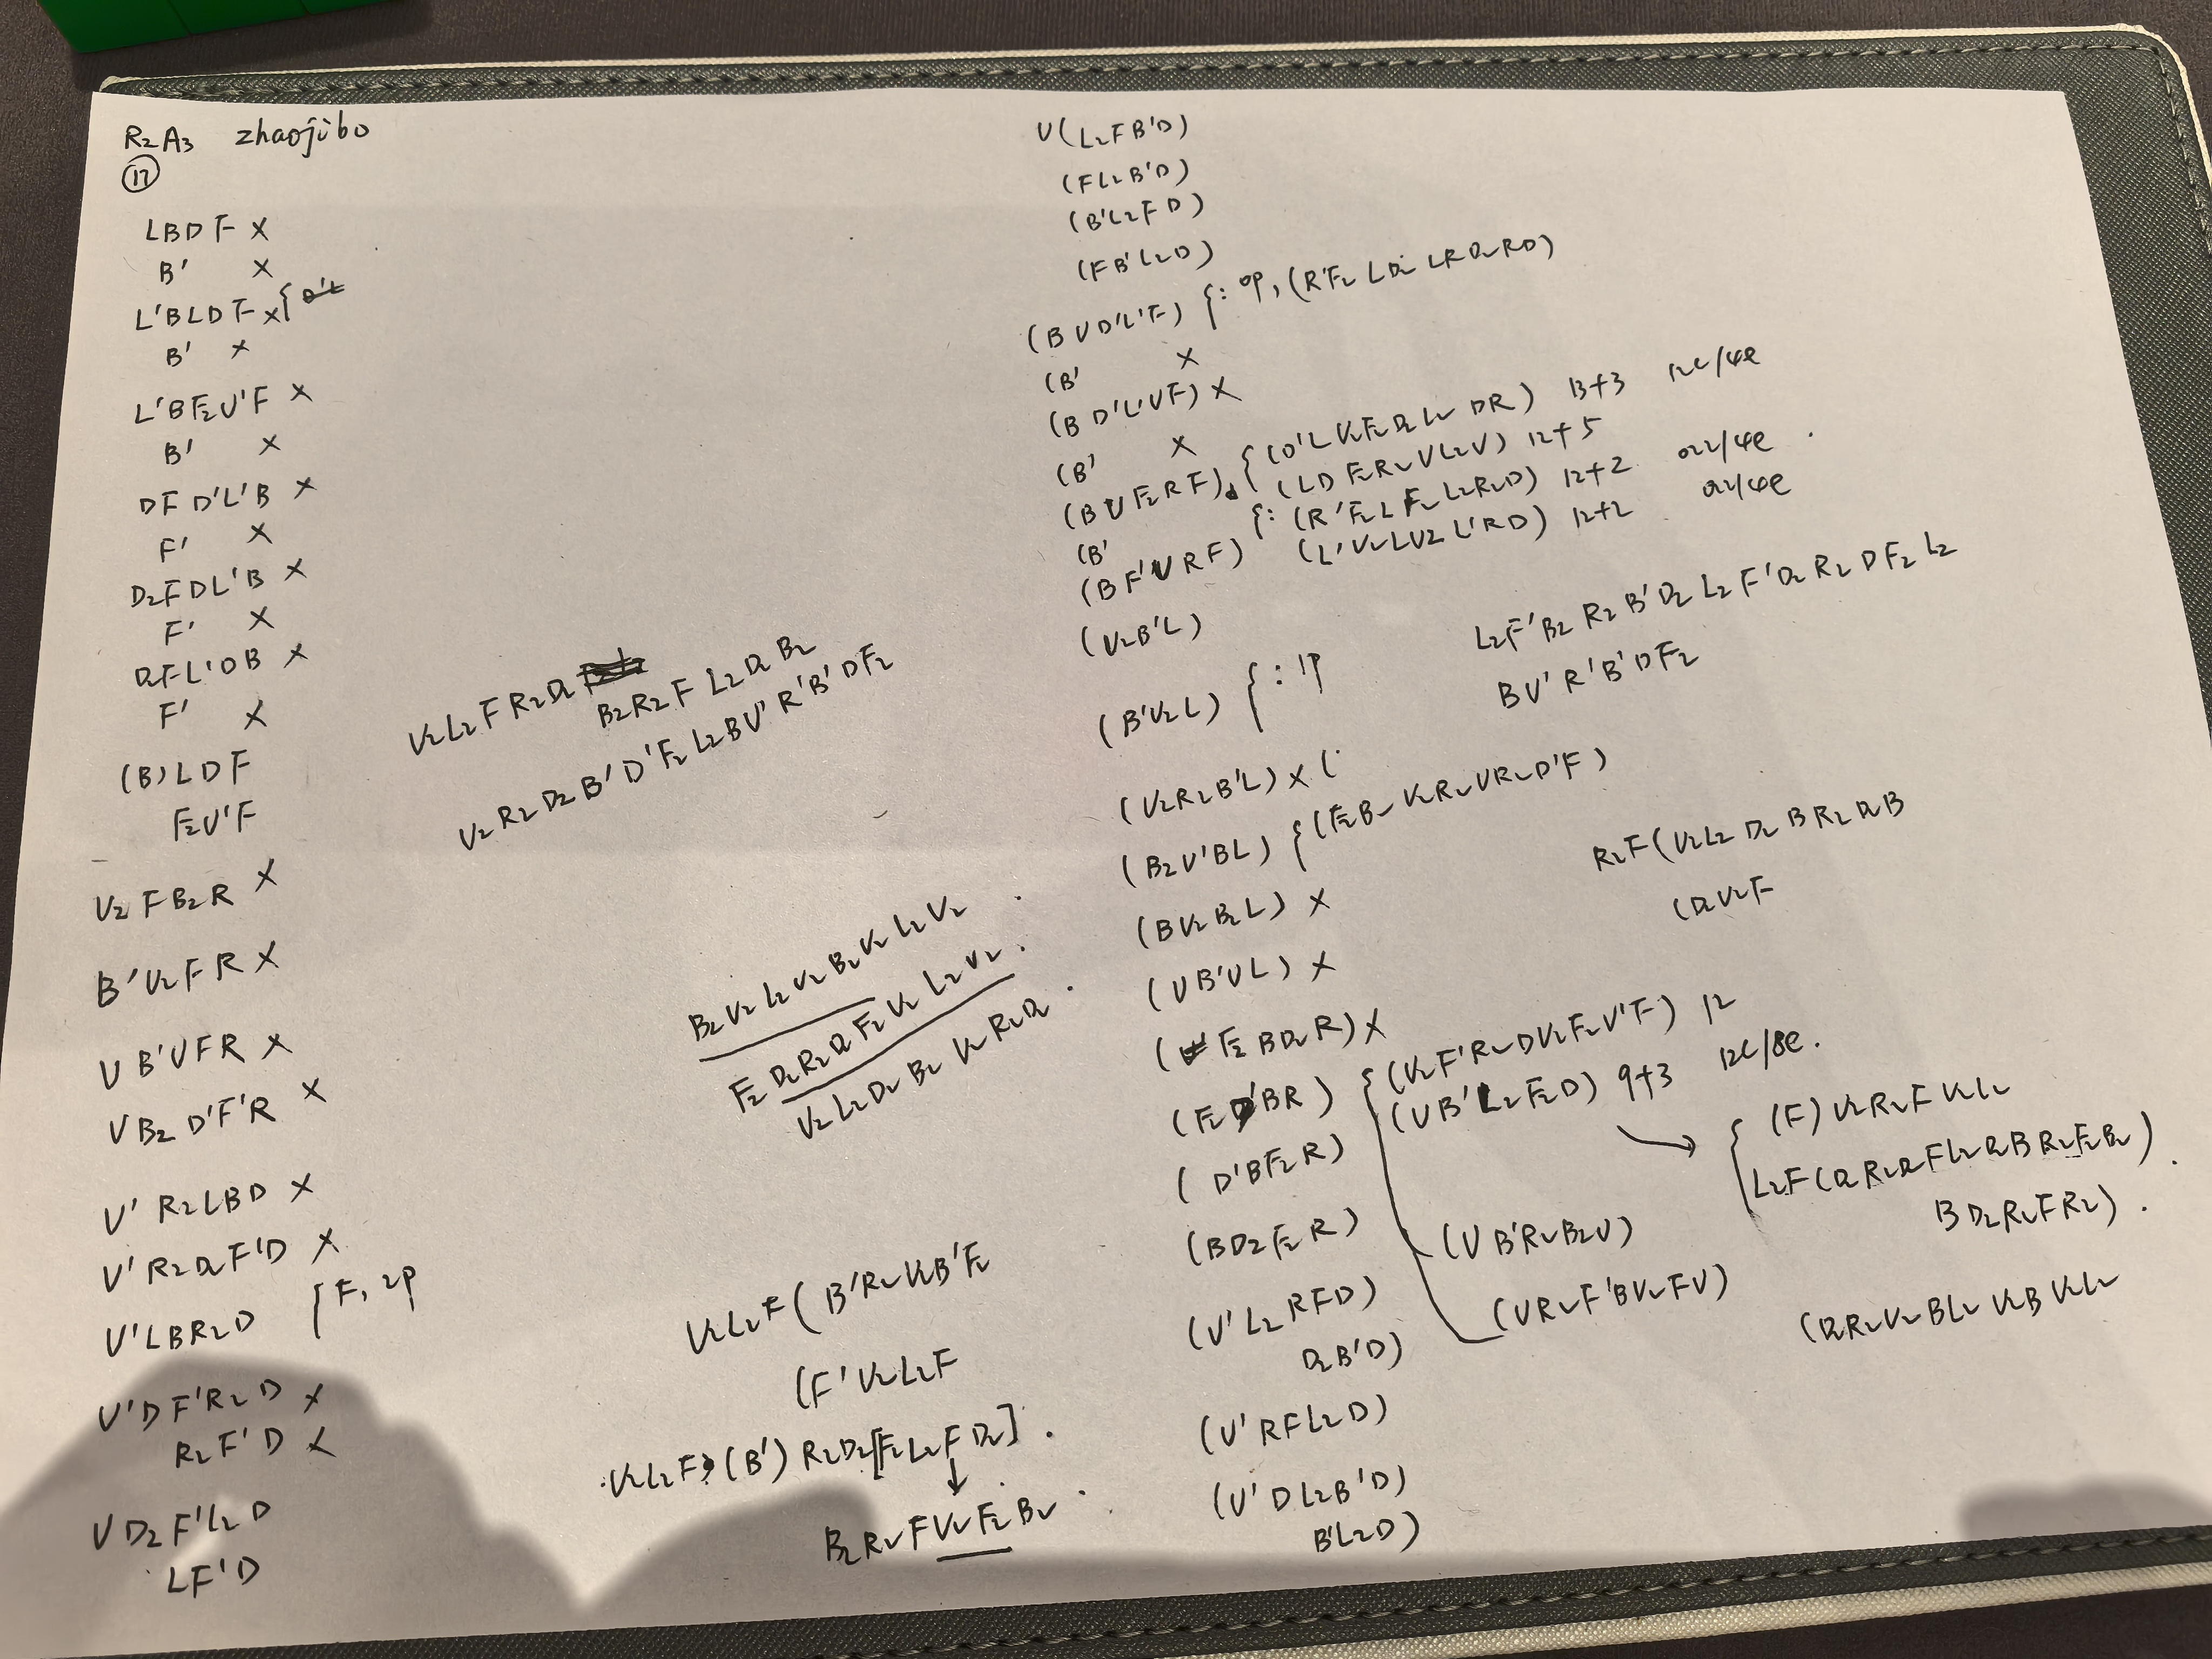 R2A3 zhaojibo
17
LBDF ×
B' ×
L'BLDF ×{
B' ×
L'BF2U'F ×
B' ×
DFD'L'B ×
F' ×
D2FDL'B ×
F' ×
D2FL'DB ×
F' ×
(B)LDF
F2U'F
U2FB2R ×
B'U2FR ×
UB'UFR ×
UB2D'F'R ×
U'R2LBD ×
U'R2D2F'D ×
U'LBR2D {F, 2p
U'DF'R2D ×
R2F'D ×
UD2F'L2D
LF'D
U2L2FR2D2
B2R2FL2D2B2
U2R2D2B'D'F2L2BU'R'B'DF2
B2U2L2U2B2U2L2U2 .
F2D2R2D2F2U2L2U2 .
U2L2D2B2U2R2D2 .
U2L2F(B'R2U2B'F2
(F'U2L2F
U2L2F (B')R2D2[F2L2FD2] .
↓
B2R2FU2F2B2 .
U(L2FB'D)
(FL2B'D)
(B'L2FD)
(FB'L2D)
(BUD'L'F) {: op, (R'F2LD2LRD2RD)
(B' ×
(BD'L'UF) ×
(B' ×
(BUF2RF) {(D'LU2F2D2L2DR) 13+3 12c/4e
(LDF2R2UL2U) 12+5
(B' {: (R'F2LF2L2R2D) 12+2 /4e .
(BF'URF) (L'U2LU2L'RD) 12+2 /4e
(U2B'L)
L2F'B2R2B'D2L2F'D2R2DF2L2
(B'U2L) {: 1p
BU'R'B'DF2
(U2R2B'L) × (
(B2U'BL) {(F2B2U2R2UR2D'F)
R2F(U2L2D2BR2D2B
(D2U2F
(BU2B2L) ×
(UB'UL) ×
(F2BD2R) ×
(F2D'BR) {(U2F'R2DU2F2U'F) 12
(UB'L2F2D) 9+3 12c/8e .
→ {(F)U2R2FU2L2
L2F(D2R2D2FL2D2BR2F2B2)
BD2R2FR2) .
(D'BF2R)
(BD2F2R)
(UB'R2B2U)
(U'L2RFD)
D2B'D)
(UR2F'BU2FU)
(D2R2U2BL2U2BU2L2
(U'RFL2D)
(U'DL2B'D)
B'L2D)